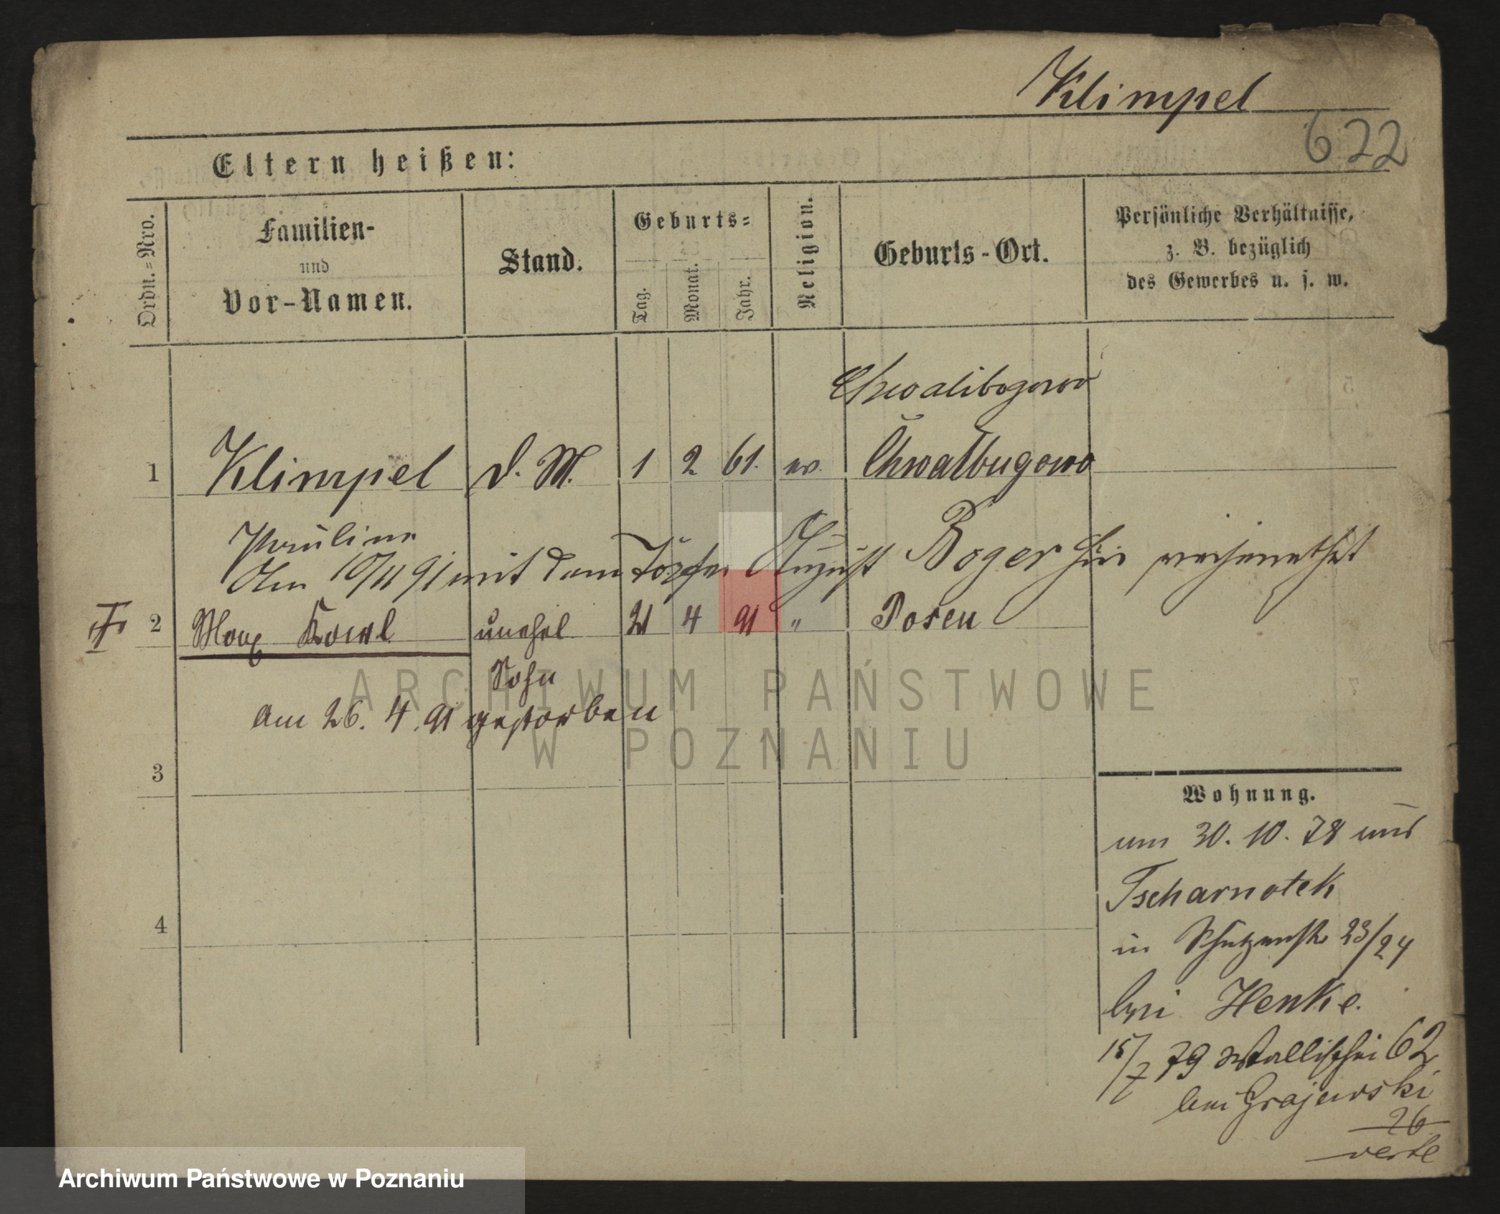 Klimpel
622
Eltern heißen:
Ordn.-Nro.
Familien-
und
Vor-Namen.
Stand.
Geburts-
Tag.
Monat.
Jahr.
Religion.
Geburts-Ort.
Persönliche Verhältnisse,
z. B. bezüglich
des Gewerbes u. s. w.
Chwalibogowo
1 Klimpel d. M. 1 2 61. ev. Chwalbugowo
Pauline
Am 10/11 91 mit dem Töpfer August Boger hier verheirathet
2 Max Karl unehel 21 4 91 " Posen
Sohn
am 26. 4. 91 gestorben
3
4
Wohnung.
30. 10. 78
Tscharnotek
in Schützenstr 23/24
bei Henke.
15/7 79 Wallischei 62
bei Grajewski
26
verte
ARCHIWUM PAŃSTWOWE
W POZNANIU
Archiwum Państwowe w Poznaniu